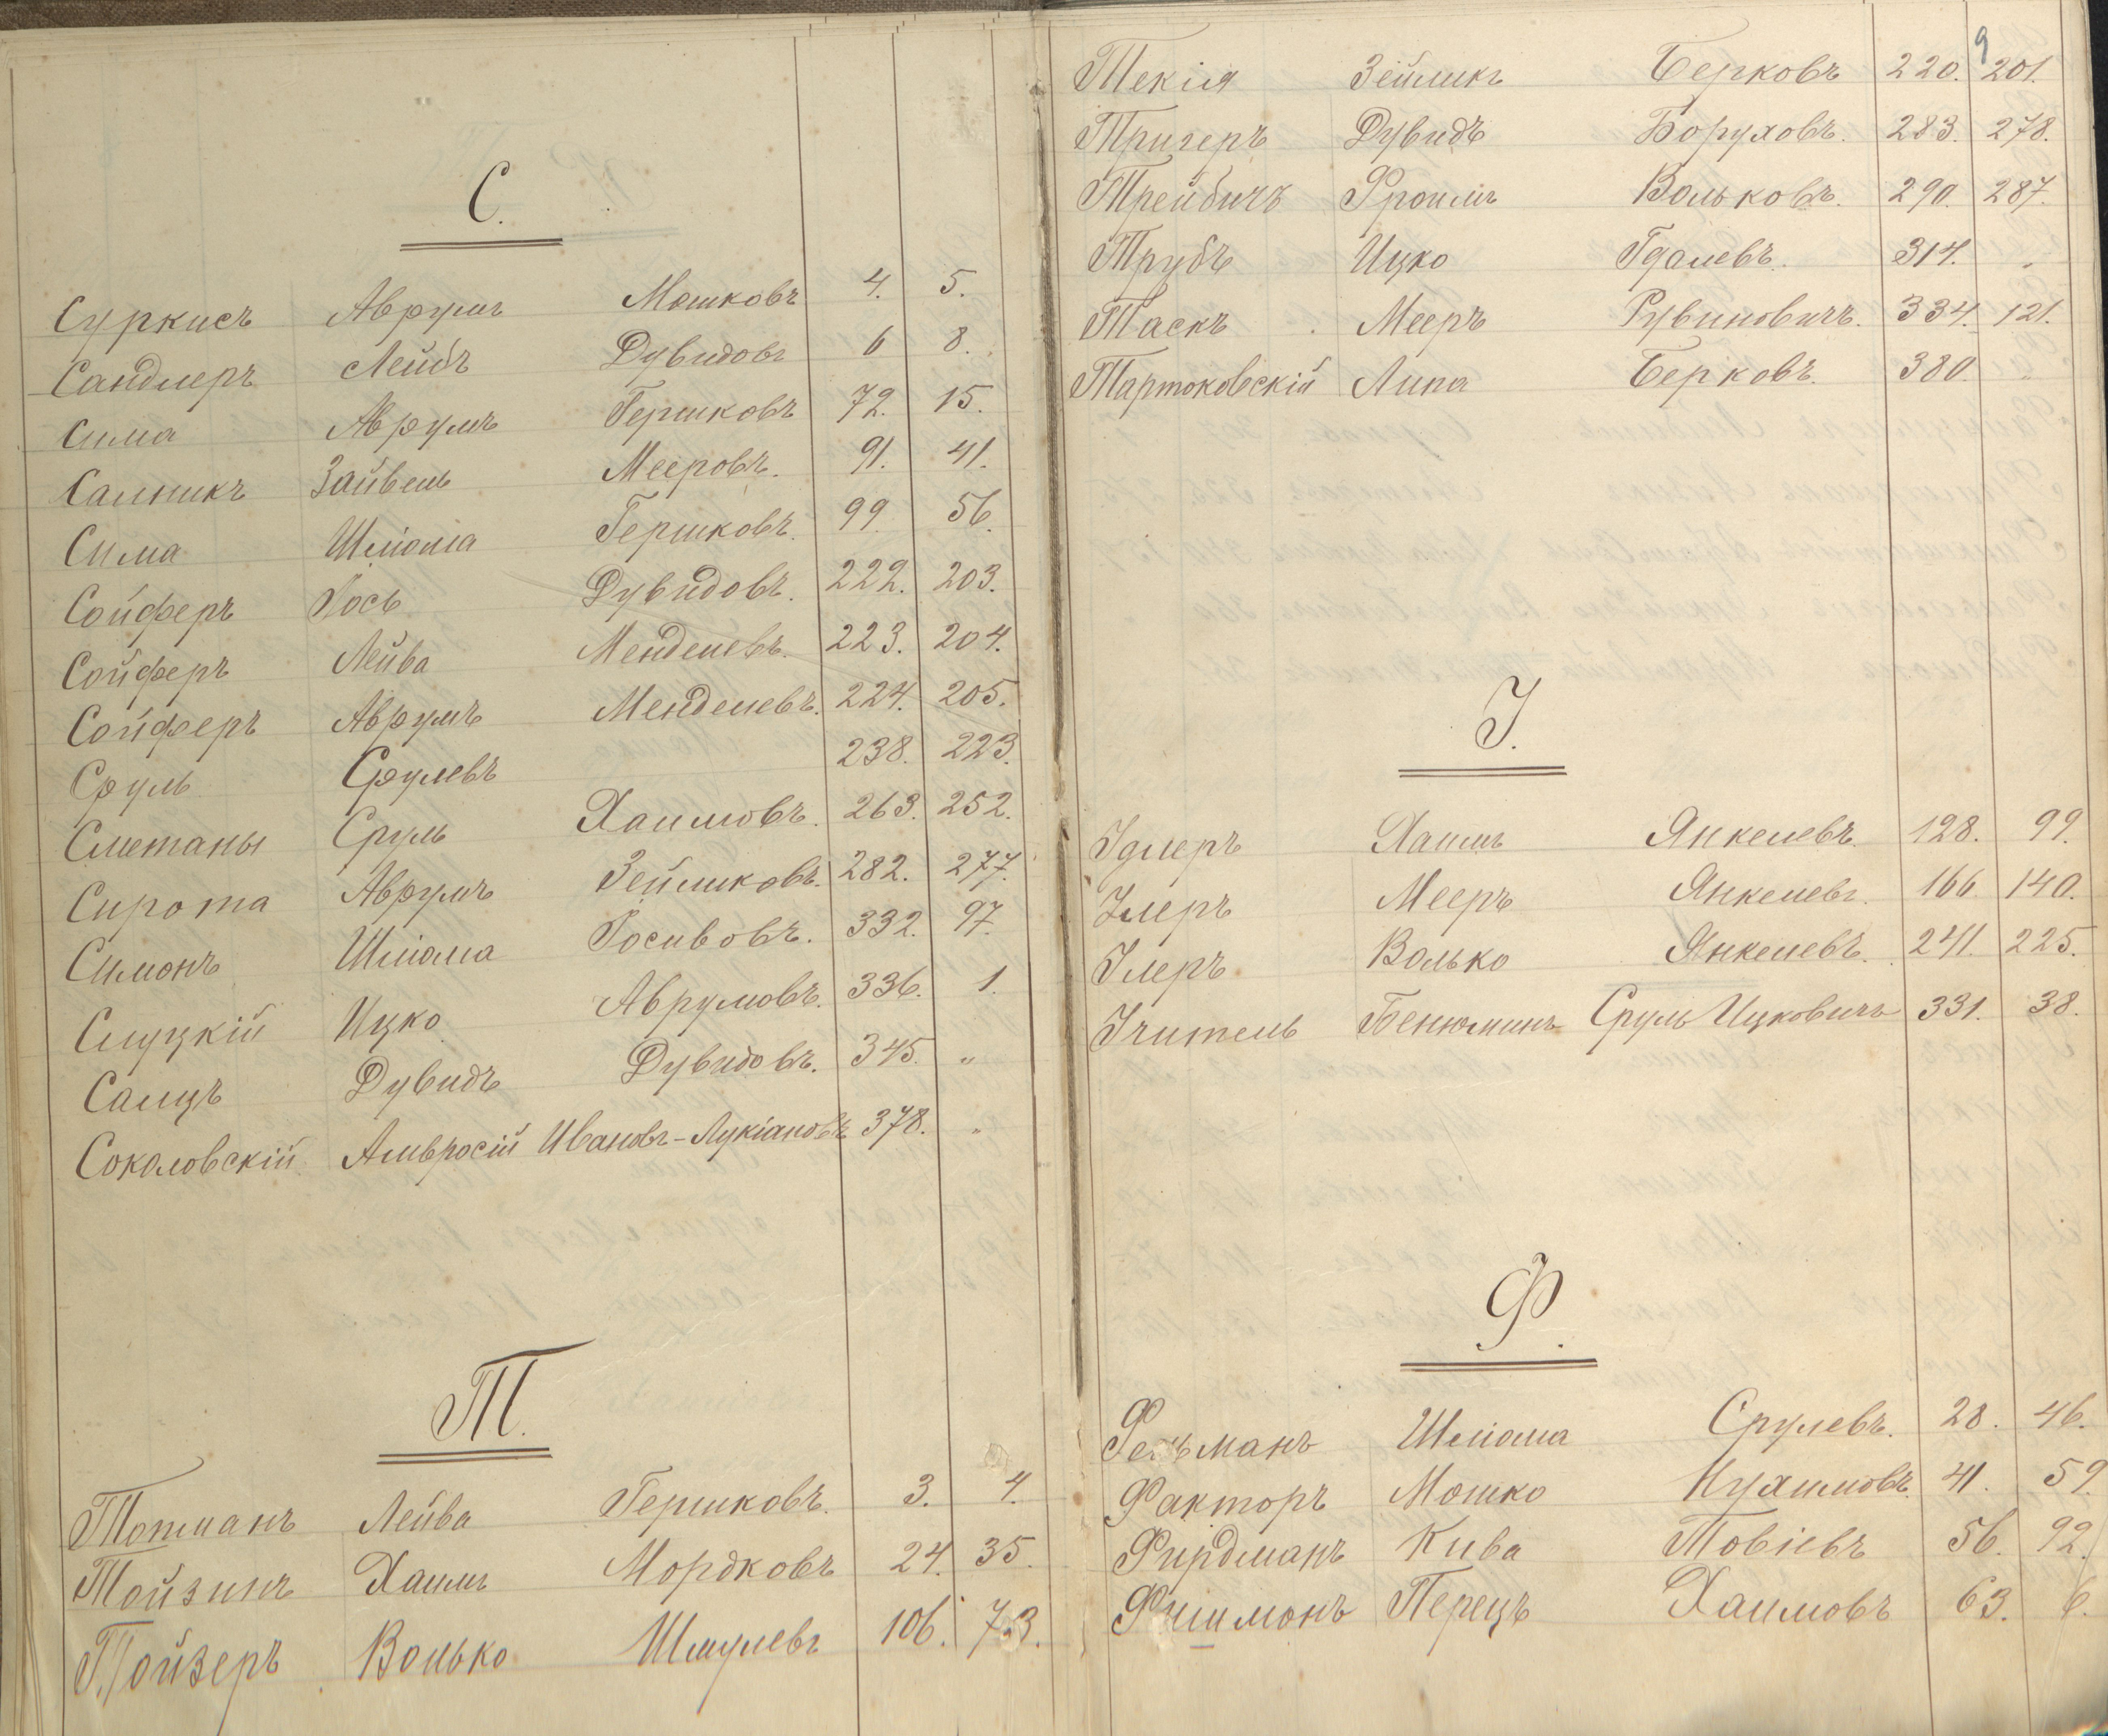 С.
Суркисъ Аврумъ Мошковъ 4. 5.
Сандлеръ Лейбъ Дувидовъ 6 8.
Сима Аврумъ Гершковъ 72. 15.
Салникъ Зайвель Мееровъ. 91. 41.
Сима Шліома Гершковъ. 99. 56.
Сойферъ Іось Дувидовъ. 222. 203.
Сойферъ Лейва Менделевъ. 223. 204.
Сойферъ Аврумъ Менделевъ. 224. 205.
Сруль Срулевъ 238. 223.
Сметаны Сруль Хаимовъ. 263. 252.
Сирота Аврумъ Зейликовъ. 282. 277.
Симонъ Шліома Іосивовъ. 332. 97.
Слуцкій Ицко Аврумовъ. 336. 1.
Салцъ Дувидъ Дувидовъ. 345. „
Соколовскій Амвросій Ивановъ-Лукіановъ 378. „
Т.
Топманъ Лейва Гершковъ. 3. 4.
Тойзинъ Хаимъ Мордковъ 24. 35.
Тойзеръ Волько Шмулевъ 106. 73.
9
Текія Зейликъ Берковъ 220. 201.
Тригеръ Дувидъ Боруховъ. 283. 278.
Трейбичъ Фроимъ Вольковъ. 290. 287.
Трубъ Ицко Гдалевъ. 314. „
Таскъ Мееръ Рувиновичъ. 334. 121.
Тартоковскій Липа Берковъ. 380. „
У.
Удлеръ Хаимъ Янкелевъ. 128. 99.
Улеръ Мееръ Янкелевъ. 166. 140.
Улеръ Волько Янкелевъ. 241. 225.
Учитель Бенюминъ Сруль Ицковичъ 331. 38.
Ф.
Фельманъ Шліома Срулевъ. 28. 46.
Факторъ Мошко Нухимовъ. 41. 59.
Фирдманъ Кива Товіевъ 56. 92.
Фишмонъ Перецъ Хаимовъ 63. 6.